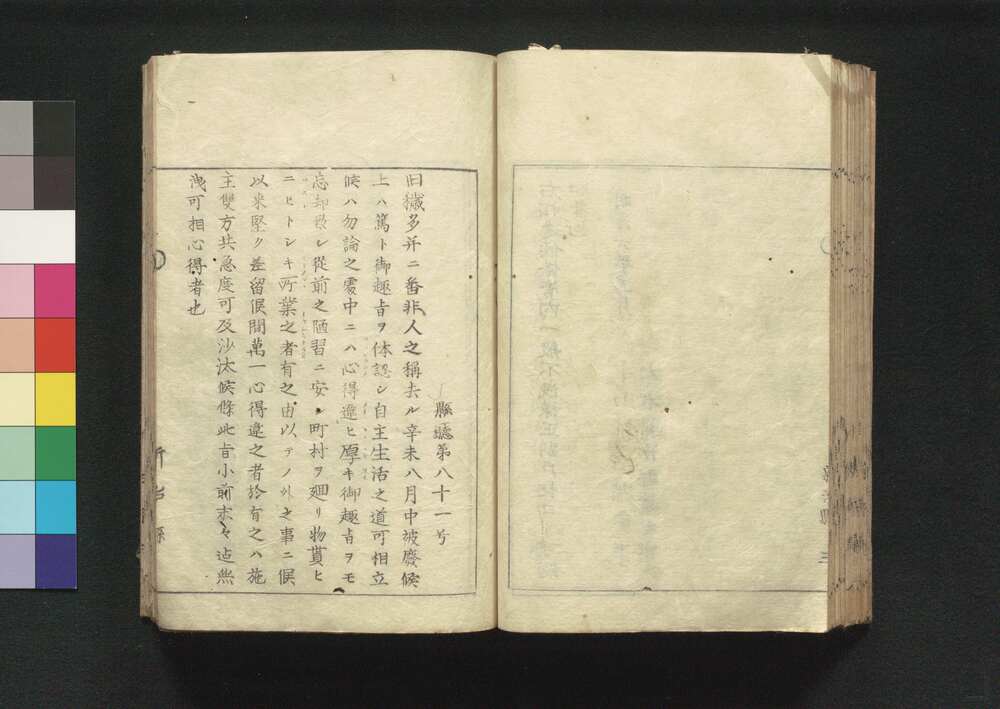 縣聴第八十一号
旧穢多并ニ番非人之稱去ル辛未八月中被廢候
上ハ篤ト御趣旨ヲ体認シ自主生活之道可相立
候ハ勿論之處中ニハ心得違ヒ厚キ御趣旨ヲモ
忘却致シ從前之陋習ニ安シ町村ヲ廻リ物貰ヒ
ニヒトシキ所業之者有之由以テノ外之事ニ候
以来堅ク差留候間萬一心得違之者於有之ハ施
主雙方共急度可及沙汰候條此旨小前末々迠無
洩可相心得者也